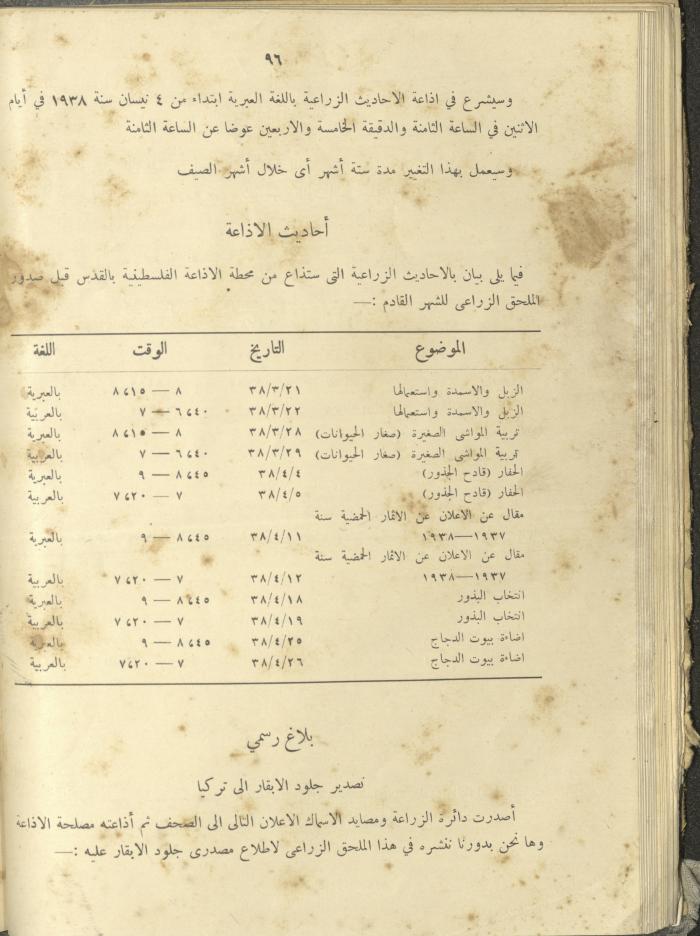 ٩٦
وسيشرع في اذاعة الاحاديث الزراعية باللغة العبرية ابتداء من ٤ نيسان سنة ١٩٣٨ في أيام
الاثنين في الساعة الثامنة والدقيقة الخامسة والاربعين عوضا عن الساعة الثامنة
وسيعمل بهذا التغيير مدة ستة أشهر أى خلال أشهر الصيف
أحاديث الاذاعة
فيما يلى بيان بالاحاديث الزراعية التى ستذاع من محطة الاذاعة الفلسطينية بالقدس قبل صدور
الملحق الزراعى للشهر القادم :—
الموضوع التاريخ الوقت اللغة
الزبل والاسمدة واستعمالها ٣٨/٣/٢١ ٨ — ٨،١٥ بالعبرية
الزبل والاسمدة واستعمالها ٣٨/٣/٢٢ ٦،٤٠ — ٧ بالعربية
تربية المواشى الصغيرة (صغار الحيوانات) ٣٨/٣/٢٨ ٨ — ٨،١٥ بالعبرية
تربية المواشى الصغيرة (صغار الحيوانات) ٣٨/٣/٢٩ ٦،٤٠ — ٧ بالعربية
الحفار (قادح الجذور) ٣٨/٤/٤ ٨،٤٥ — ٩ بالعبرية
الحفار (قادح الجذور) ٣٨/٤/٥ ٧ — ٧،٢٠ بالعربية
مقال عن الاعلان عن الاثمار الحمضية سنة
١٩٣٧—١٩٣٨ ٣٨/٤/١١ ٨،٤٥ — ٩ بالعبرية
مقال عن الاعلان عن الاثمار الحمضية سنة
١٩٣٧—١٩٣٨ ٣٨/٤/١٢ ٧ — ٧،٢٠ بالعربية
انتخاب البذور ٣٨/٤/١٨ ٨،٤٥ — ٩ بالعبرية
انتخاب البذور ٣٨/٤/١٩ ٧ — ٧،٢٠ بالعربية
اضاءة بيوت الدجاج ٣٨/٤/٢٥ ٨،٤٥ — ٩ بالعبرية
اضاءة بيوت الدجاج ٣٨/٤/٢٦ ٧ — ٧،٢٠ بالعربية
بلاغ رسمي
تصدير جلود الابقار الى تركيا
أصدرت دائرة الزراعة ومصايد الاسماك الاعلان التالى الى الصحف ثم أذاعته مصلحة الاذاعة
وها نحن بدورنا ننشره في هذا الملحق الزراعى لاطلاع مصدرى جلود الابقار عليه :—